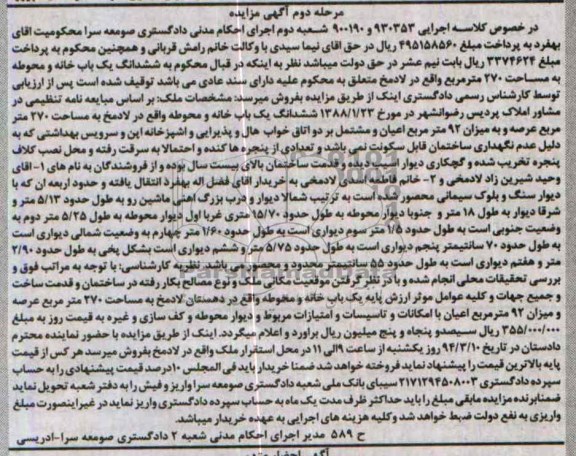 مرحله دوم آگهی مزایده
در خصوص کلاسه اجرایی ۹۳۰۳۵۳ و ۹۰۰۱۹۰ شعبه دوم اجرای احکام مدنی دادگستری صومعه سرا محکومیت آقای
بهفرد به پرداخت مبلغ ۴۹۵۱۵۸۵۶۰ ریال در حق آقای نیما سیدی با وکالت خانم رامش قربانی و همچنین محکوم به پرداخت
مبلغ ۳۳۷۴۶۲۴ ریال بابت نیم عشر در حق دولت میباشد نظر به اینکه در قبال محکوم به ششدانگ یک باب خانه و محوطه
به مساحت ۲۷۰ مترمربع واقع در لادمخ متعلق به محکوم علیه دارای سند عادی می باشد توقیف شده است پس از ارزیابی
توسط کارشناس رسمی دادگستری اینک از طریق مزایده بفروش میرسد: مشخصات ملک: بر اساس مبایعه نامه تنظیمی در
مشاور املاک پردیس رضوانشهر در مورخ ۱۳۸۸/۱/۲۳ ششدانگ یک باب خانه و محوطه واقع در لادمخ به مساحت ۲۷۰ متر
مربع عرصه و به میزان ۹۲ متر مربع اعیان و مشتمل بر دو اتاق خواب هال و پذیرایی و آشپزخانه اپن و سرویس بهداشتی که به
دلیل عدم نگهداری ساختمان قابل سکونت نمی باشد و تعدادی از پنجره ها کنده و احتمالا به سرقت رفته و محل نصب کلاف
پنجره تخریب شده و گچکاری دیوار آسیب دیده و قدمت ساختمان بالای بیست سال بوده و از فروشندگان به نام های ۱- آقای
وحید شیرین زاد لادمخی و ۲- خانم فاطمه اسدی لادمخی به خریدار آقای فضل اله بهفرد انتقال یافته و حدود اربعه آن که با
دیوار سنگ و بلوک سیمانی محصور شده است به ترتیب شمالا دیوار و درب بزرگ آهنی ماشین رو به طول حدود ۵/۱۳ متر و
شرقا دیوار به طول ۱۸ متر و جنوبا دیوار محوطه به طول حدود ۱۵/۷۰ متری غربا اول دیوار محوطه به طول ۵/۲۵ متر دوم به
وضعیت جنوبی است به طول حدود ۱/۵ متر سوم دیواری است به طول حدود ۱/۶۰ متر چهارم به وضعیت شمالی دیواری است
به طول حدود ۷۰ سانتیمتر پنجم دیواری است به طول حدود ۵/۷۵ متر و ششم دیواری است بشکل پخی به طول حدود ۲/۹۰
متر و هفتم دیواری است به طول حدود ۵۵ سانتیمتر محدود و محصور می باشد. نظریه کارشناسی: با توجه به مراتب فوق و
بررسی تحقیقات محلی انجام شده و با در نظر گرفتن موقعیت مکانی ملک و نوع مصالح بکار رفته در ساختمان و قدمت ساخت
و جمیع جهات و کلیه عوامل موثر ارزش پایه یک باب خانه و محوطه واقع در دهستان لادمخ به مساحت ۲۷۰ متر مربع عرصه
و میزان ۹۲ مترمربع اعیان با امکانات و تاسیسات و امتیازات مربوط و دیوار محوطه و کف سازی و غیره به قیمت روز به مبلغ
۳۵۵/۰۰۰/۰۰۰ ریال سیصدو پنجاه و پنج میلیون ریال برآورد و اعلام میگردد. اینک از طریق مزایده با حضور نماینده محترم
دادستان در تاریخ ۹۴/۳/۱۰ روز یکشنبه از ساعت ۹الی ۱۱ در محل استقرار ملک واقع در لادمخ بفروش میرسد هر کس از قیمت
پایه بالاترین قیمت را پیشنهاد نماید فروخته خواهد شد ضمنا خریدار باید فی المجلس ۱۰درصد قیمت پیشنهادی را به حساب
سپرده دادگستری ۲۱۷۱۲۹۴۵۰۸۰۰۳ سیبای بانک ملی شعبه دادگستری صومعه سرا واریز و فیش را به دفتر شعبه تحویل نماید
ضمنا برنده مزایده مابقی مبلغ را باید حداکثر ظرف مدت یک ماه به حساب سپرده دادگستری واریز نماید در غیر اینصورت مبلغ
واریزی به نفع دولت ضبط خواهد شد و کلیه هزینه های اجرایی به عهده خریدار میباشد.
ح ۵۸۹ مدیر اجرای احکام مدنی شعبه ۲ دادگستری صومعه سرا-ادریسی